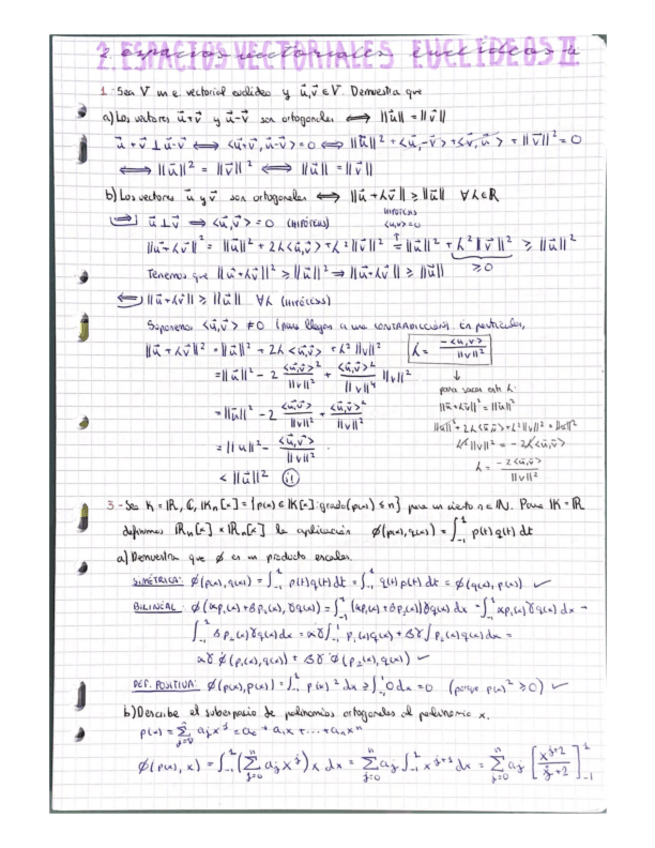 2. ESPACIOS VECTORIALES EUCLÍDEOS II
1-Sea V un e. vectorial euclídeo y u⃗,v⃗ ∈ V. Demuestra que
a) Los vectores u⃗+v⃗ y u⃗-v⃗ son ortogonales ⟺ ||u⃗|| = ||v⃗||
u⃗+v⃗ ⊥ u⃗-v⃗ ⟺ <u⃗+v⃗, u⃗-v⃗> = 0 ⟺ ||u⃗||² + <u⃗,-v⃗> + <v⃗,u⃗> - ||v⃗||² = 0
⟺ ||u⃗||² = ||v⃗||² ⟺ ||u⃗|| = ||v⃗||
b) Los vectores u⃗ y v⃗ son ortogonales ⟺ ||u⃗+λv⃗|| ≥ ||u⃗|| ∀λ∈R
⟹ u⃗ ⊥ v⃗ ⟹ <u⃗,v⃗> = 0 (HIPÓTESIS)
HIPÓTESIS
<u,v>=0
||u⃗+λv⃗||² = ||u⃗||² + 2λ<u⃗,v⃗> + λ²||v⃗||² = ||u⃗||² + λ²||v⃗||² ≥ ||u⃗||²
≥0
Tenemos que ||u⃗+λv⃗||² ≥ ||u⃗||² ⟹ ||u⃗+λv⃗|| ≥ ||u⃗||
⟸ ||u⃗+λv⃗|| ≥ ||u⃗|| ∀λ (HIPÓTESIS)
Suponemos <u⃗,v⃗> ≠ 0 (para llegar a una CONTRADICCIÓN). En particular,
||u⃗+λv⃗||² = ||u⃗||² + 2λ<u⃗,v⃗> + λ²||v||² λ = -<u,v>/||v||²
= ||u⃗||² - 2 <u⃗,v⃗>²/||v||² + <u⃗,v⃗>²/||v||⁴ ||v||²
↓
para sacar este λ:
||u⃗+λv⃗||² = ||u⃗||²
= ||u⃗||² - 2 <u⃗,v⃗>²/||v||² + <u⃗,v⃗>²/||v||²
||u⃗||² + 2λ<u⃗,v⃗> + λ²||v||² = ||u⃗||²
λ²||v||² = -2λ<u⃗,v⃗>
= ||u||² - <u⃗,v⃗>²/||v||²
λ = -2<u⃗,v⃗>/||v||²
< ||u⃗||² ¡!
3-Sea K = R, C, Kₙ[x] = {p(x) ∈ K[x] : grado(p(x)) ≤ n} para un cierto n∈N. Para K = R
definimos Rₙ[x] × Rₙ[x] la aplicación ϕ(p(x), q(x)) = ∫₋₁¹ p(t) q(t) dt
a) Demuestra que ϕ es un producto escalar.
SIMÉTRICA: ϕ(p(x), q(x)) = ∫₋₁¹ p(t)q(t) dt = ∫₋₁¹ q(t)p(t) dt = ϕ(q(x), p(x)) ✓
BILINEAL: ϕ(αp₁(x)+βp₂(x), γq(x)) = ∫₋₁¹ (αp₁(x)+βp₂(x))γq(x) dx = ∫₋₁¹ αp₁(x)γq(x) dx +
∫₋₁¹ βp₂(x)γq(x) dx = αγ∫₋₁¹ p₁(x)q(x) + βγ∫ p₂(x)q(x) dx =
αγ ϕ(p₁(x), q(x)) + βγ ϕ(p₂(x), q(x)) ✓
DEF. POSITIVA: ϕ(p(x), p(x)) = ∫₋₁¹ p(x)² dx ≥ ∫₋₁¹ 0 dx = 0 (porque p(x)² ≥ 0) ✓
b) Describe el subespacio de polinomios ortogonales al polinomio x.
p(x) = Σⱼ₌₀ⁿ aⱼxʲ = a₀ + a₁x + ... + aₙxⁿ
ϕ(p(x), x) = ∫₋₁¹ (Σⱼ₌₀ⁿ aⱼxʲ) x dx = Σⱼ₌₀ⁿ aⱼ ∫₋₁¹ xʲ⁺¹ dx = Σⱼ₌₀ⁿ aⱼ [xʲ⁺²/(j+2)]₋₁¹